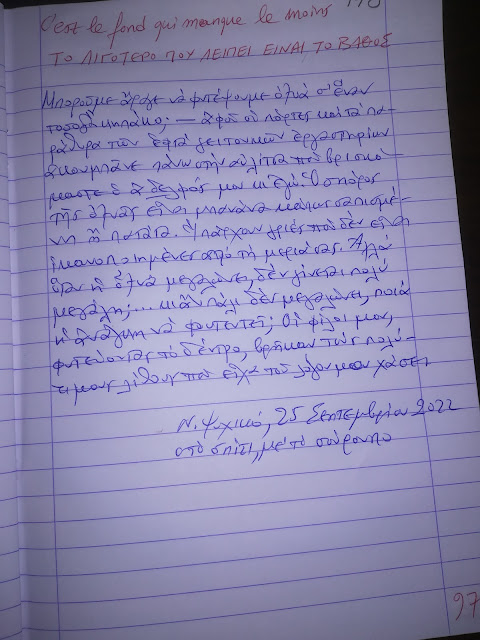 C'est le fond qui manque le moins
ΤΟ ΛΙΓΟΤΕΡΟ ΠΟΥ ΛΕΙΠΕΙ ΕΙΝΑΙ ΤΟ ΒΑΘΟΣ
Μποροῦμε ἄραγε νὰ φυτέψουμε ὀξυὰ σ' ἕναν
τοσοδὰ κηπάκο; — ἀφοῦ οἱ πόρτες καὶ τὰ πα-
ράθυρα τῶν ἑφτὰ γειτονικῶν ἐργαστηρίων
ἀκουμπᾶνε πάνω στὴν αὐλίτσα ποὺ βρισκό-
μαστε ὁ ἀδελφός μου κι ἐγώ. Ὁ σπόρος
τῆς ὀξυᾶς εἶναι μπανάνα κάπως σαπισμέ-
νη ἢ πατάτα. Ὑπάρχουν γριὲς ποὺ δὲν εἶναι
ἱκανοποιημένες ἀπὸ τὴ μεριά σας. Ἀλλὰ
ἂν ἡ ὀξυὰ μεγαλώνει, δὲν γίνεται πολὺ
μεγάλη;... κι ἂν πάλι δὲν μεγαλώνει, ποιά
ἡ ἀνάγκη νὰ φυτευτεῖ; Οἱ φίλοι μου,
φυτεύοντας τὸ δέντρο, βρῆκαν τοὺς πολύ-
τιμους λίθους ποὺ εἶχα τοῦ λόγου μου χάσει
Ν. Ψυχικό, 25 Σεπτεμβρίου 2022
στὸ σπίτι, μὲ τὸ σούρουπο
97